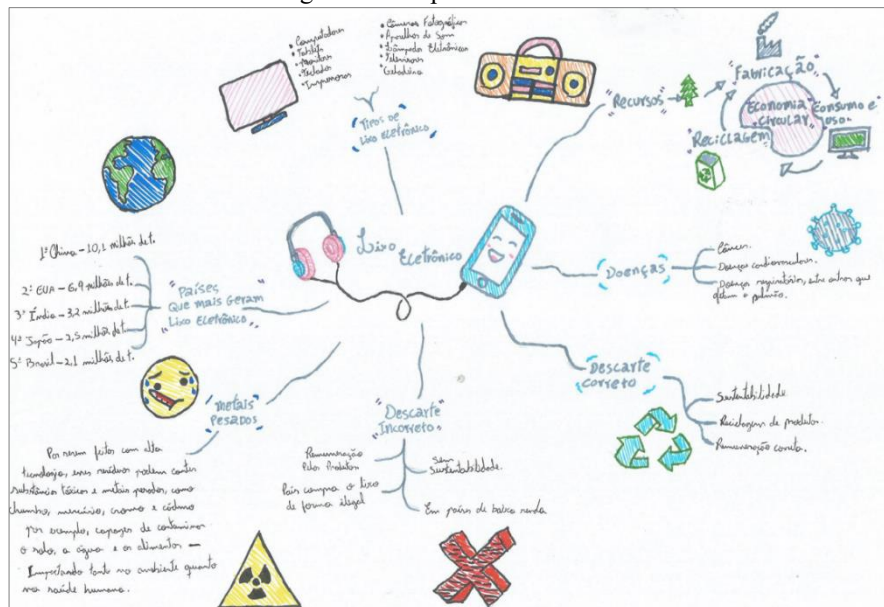 Lixo
Eletrônico
"Tipos de
Lixo Eletrônico"
• Computadores
• Tablets
• Monitores
• Teclados
• Impressoras
• Câmeras Fotográficas
• Aparelhos de Som
• Lâmpadas Eletrônicas
• Televisores
• Geladeira
"Recursos"
"Fabricação"
"Economia
Circular"
"Consumo e
uso"
"Reciclagem"
"Doenças"
Câncer.
Doenças cardiovasculares.
Doenças respiratórias, entre outros que
o pulmão.
Descarte
Correto
Sustentabilidade
Reciclagem de produtos.
Remuneração correta.
Descarte
Incorreto
Remuneração
Pelos Produtos
País compra o lixo
de forma ilegal
Sem
sustentabilidade.
Em países de baixa renda
Metais
Pesados
Por serem feitos com alta
tecnologia, esses resíduos podem conter
substâncias tóxicas e metais pesados, como
chumbo, mercúrio, cromo e cádmio
por exemplo, capazes de contaminar
o solo, a água e os alimentos —
Impactando tanto no ambiente quanto
na saúde humana.
"Países
Que mais Geram
Lixo Eletrônico"
1º China – 10,1 milhões de t.
2º EUA – 6,9 milhões de t.
3º Índia – 3,2 milhões de t.
4º Japão – 2,5 milhões de t.
5º Brasil – 2,1 milhões de t.